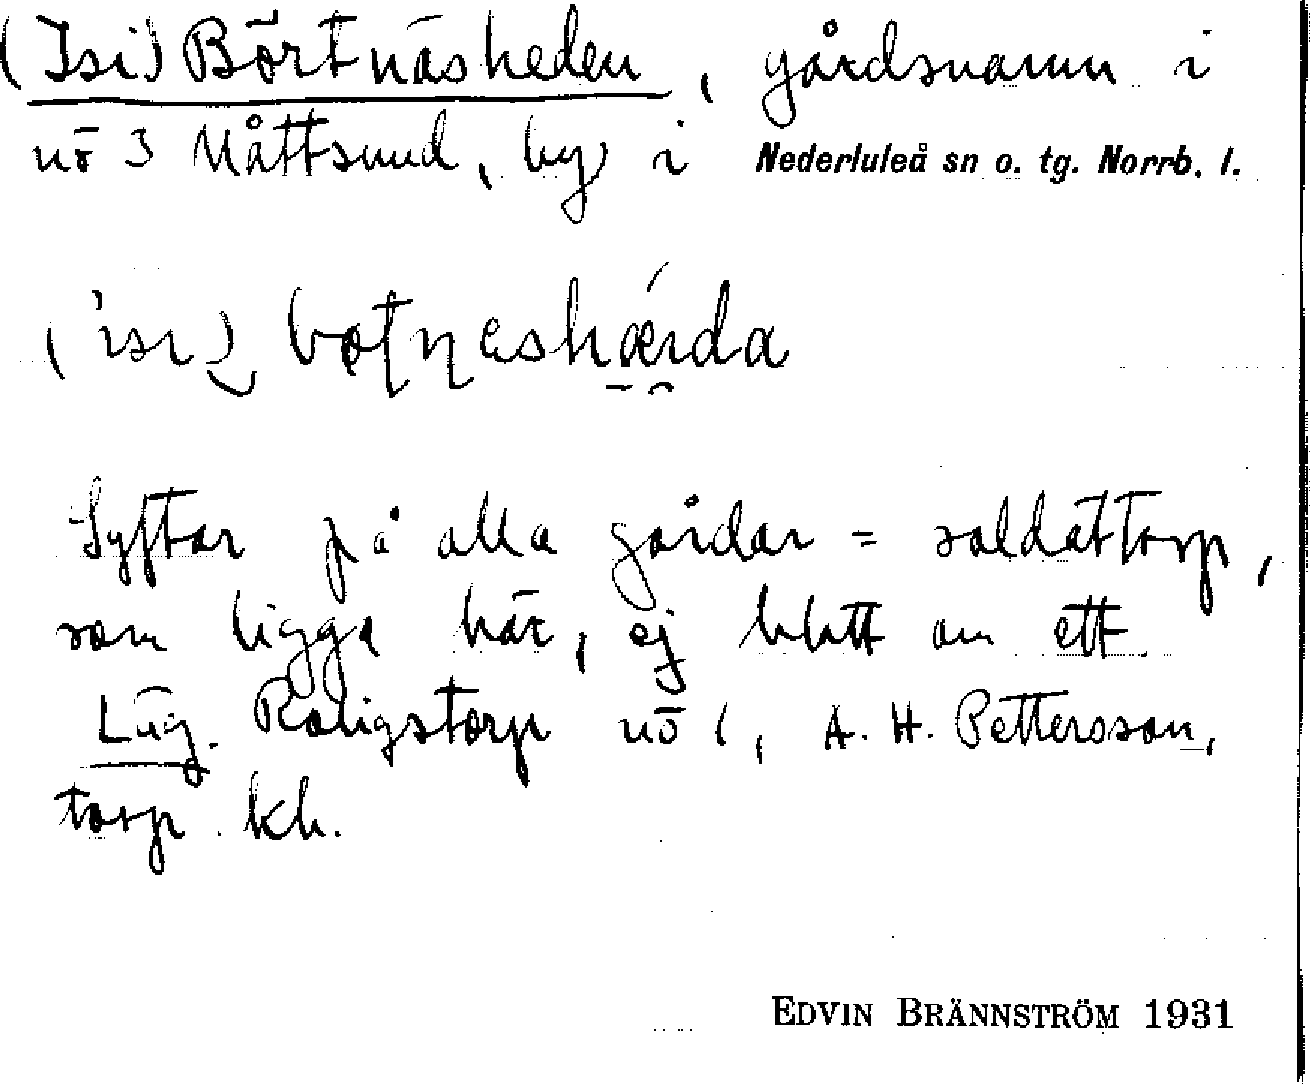 (Isi) Börtnäsheden, gårdsnamn i
nō 3 Måttsund, by i Nederluleå sn o. tg. Norrb. l.
Syftar på alla gårdar = soldattorp,
som ligga här, ej blott om ett
Läg. Roligstorp nō 1, A. H. Pettersson,
torp kh.
EDVIN BRÄNNSTRÖM 1931